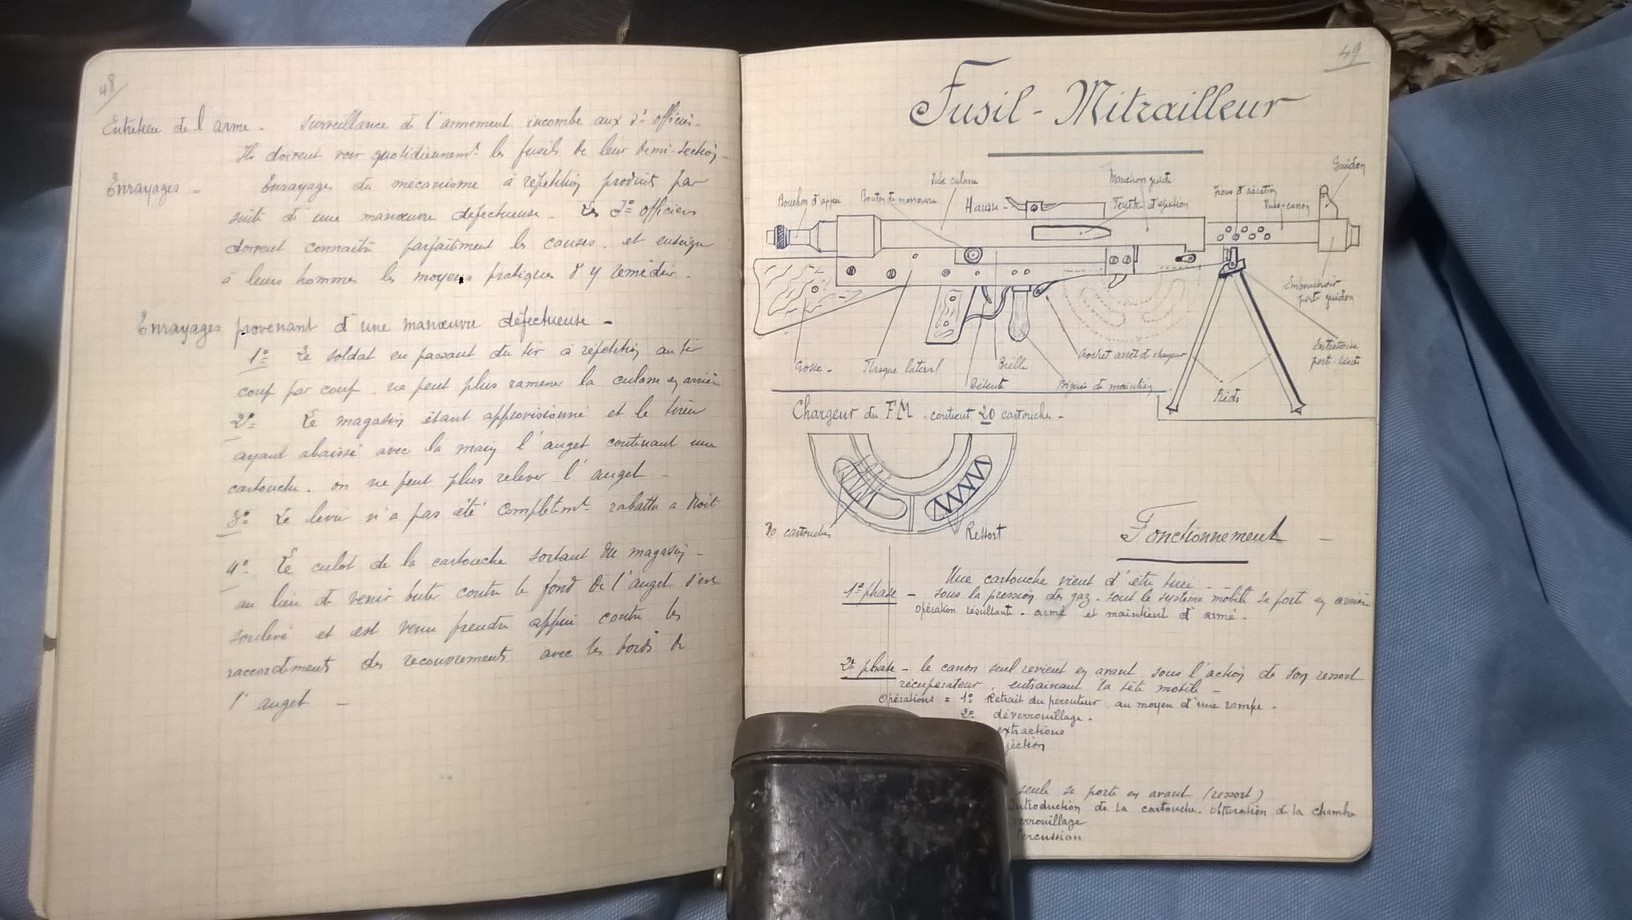 48
Entretien de l'arme - Surveillance de l'armement incombe aux s/s officiers -
Ils doivent voir quotidiennemt les fusils de leur demi-section -
Enrayages - Enrayages du mécanisme à répétition produits par
suite d'une manœuvre défectueuse. Les officiers
doivent connaître parfaitement les causes, et enseigner
à leurs hommes les moyens pratiques d'y remédier.
Enrayages provenant d'une manœuvre défectueuse -
1° Le soldat en passant du tir à répétition au tir
coup par coup ne peut plus ramener la culasse en arrière
2° Le magasin étant approvisionné et le tireur
ayant abaissé avec la main l'auget contenant une
cartouche. on ne peut plus relever l'auget -
3° Le levier n'a pas été complètmt rabattu à droite
4° Le culot de la cartouche sortant du magasin -
au lieu de venir buter contre le fond de l'auget s'est
soulevé et est venu prendre appui contre les
raccordements des recouvrements avec les bords de
l'auget -
49
Fusil-Mitrailleur
Guidon
Tube culasse
Manchon guide
Bouchon d'appui
Bouton de manœuvre
Hausse
Fenêtre d'éjection
Trous d'aération
Tube-canon
Embouchoir
porte guidon
Crosse -
Plaque latéral
Béille
Détente
Poignée de maintien
Crochet arrêt de chargeur
Pieds
Entretoise
porte-pieds
Chargeur du FM - contient 20 cartouche -
20 cartouches
Ressort
Fonctionnement -
Une cartouche vient d'être tirée -
1° phase - sous la pression des gaz. tout le système mobile se porte en arrière
opération résultant - armé et maintient d'armé -
2e phase - le canon seul revient en avant sous l'action de son ressort
récupérateur, entrainant la tête mobile -
Opérations = 1° Retrait du percuteur au moyen d'une rampe -
2° déverrouillage.
extractions
jection
seule se porte en avant (ressort)
introduction de la cartouche. obturation de la chambre
verrouillage
percussion